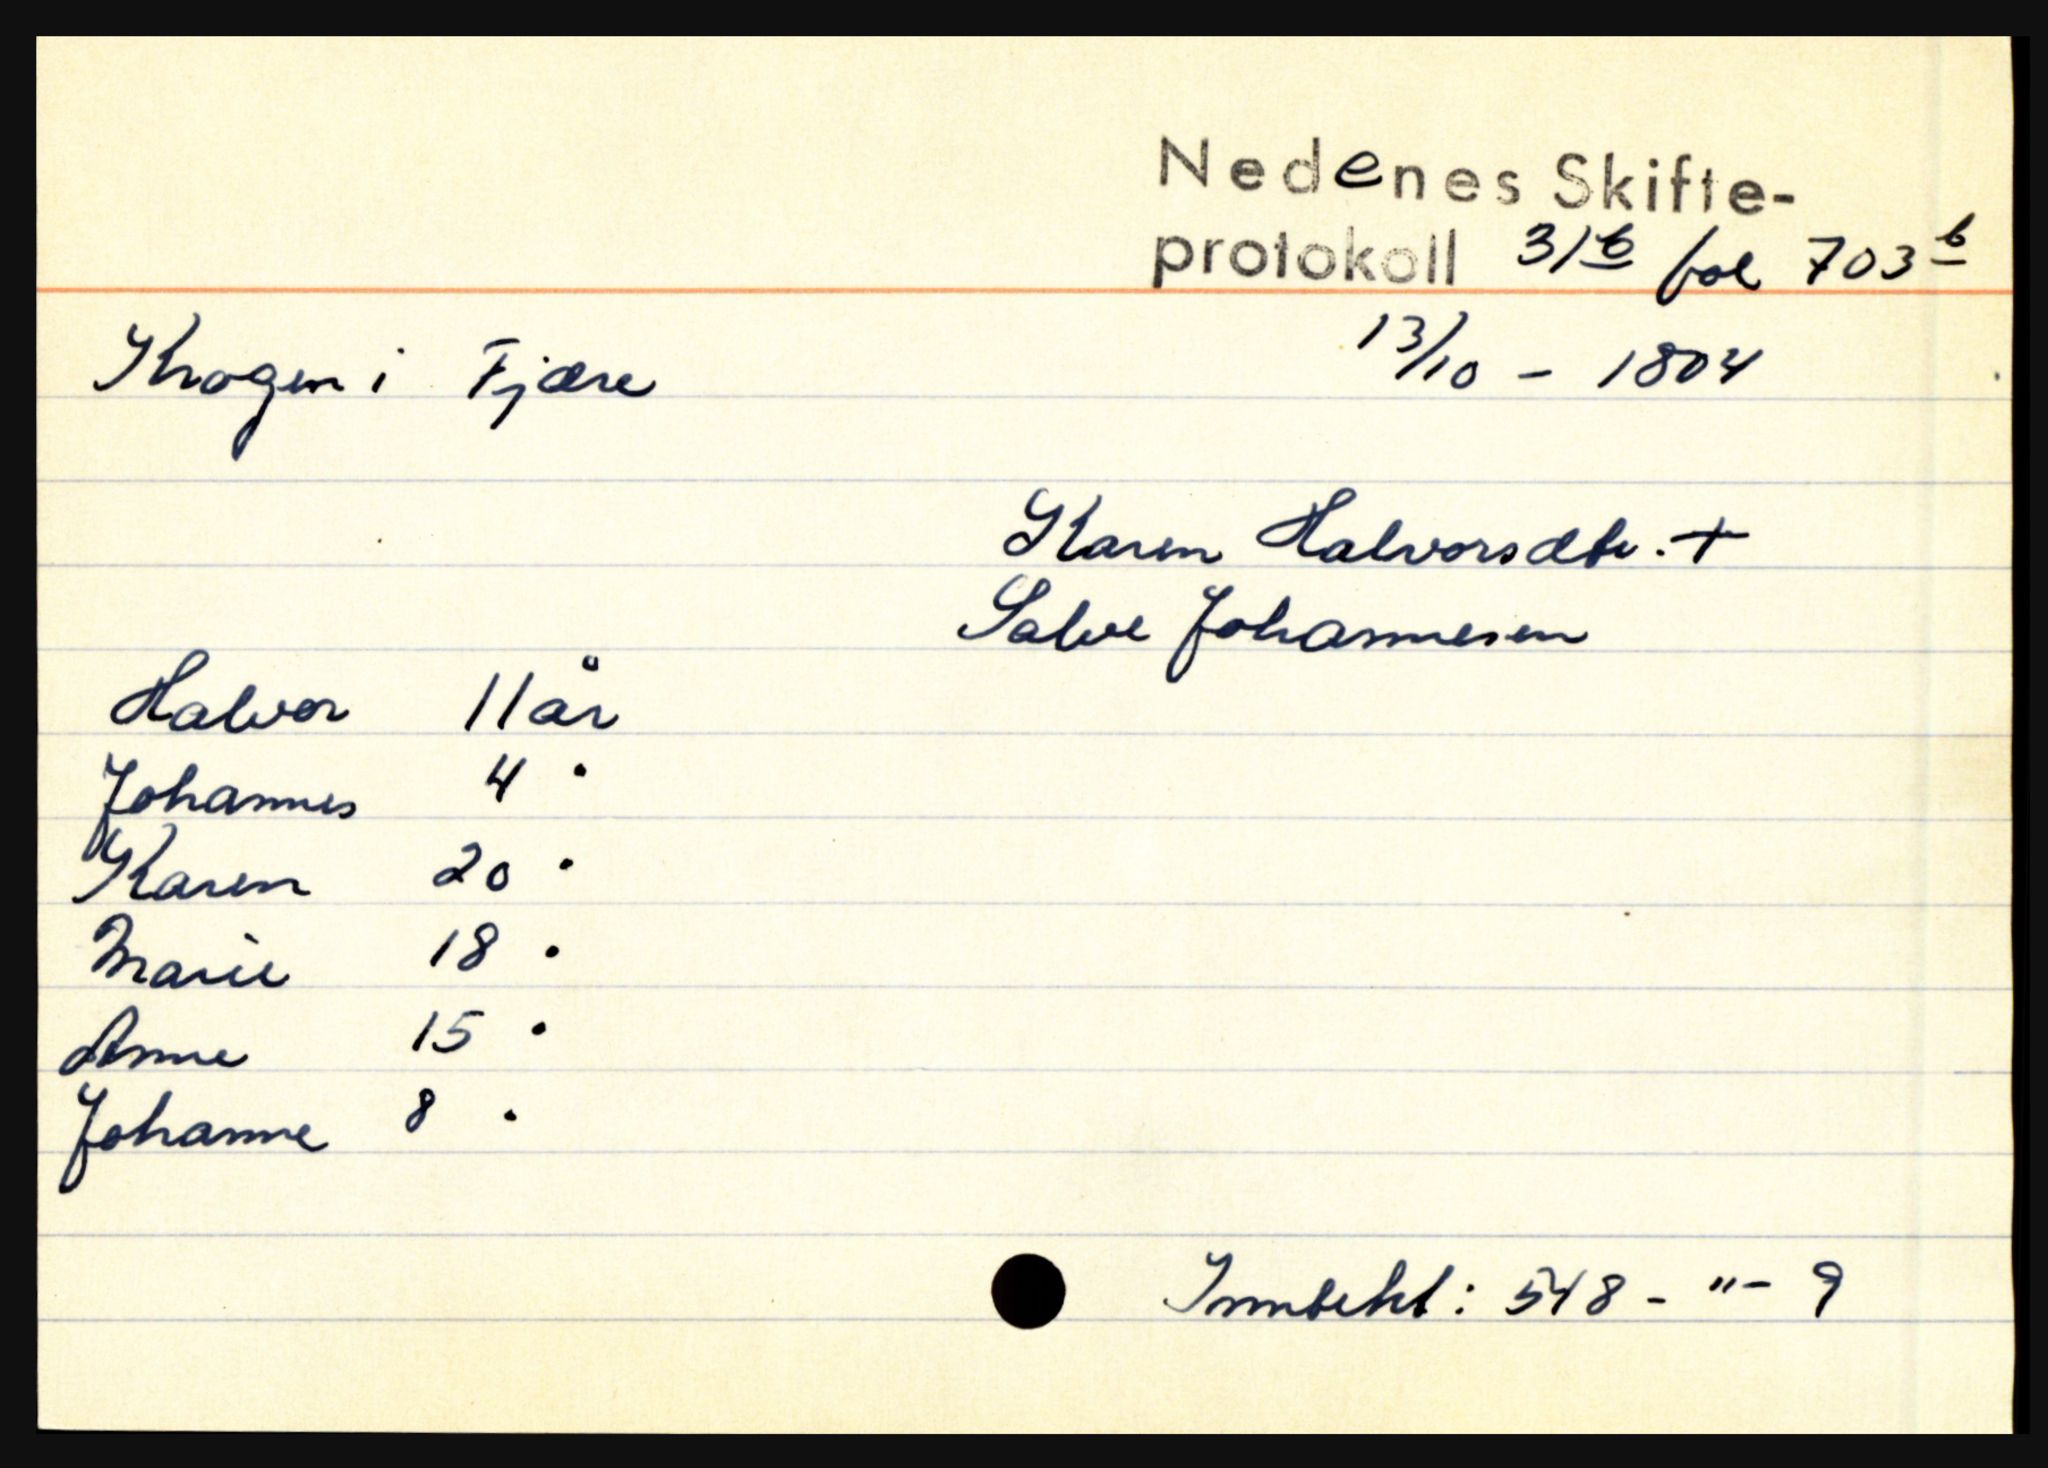 Nedenes Skifte-
protokoll 31b fol 703b
Krogen i Fjære 13/10 - 1804
Karen Halvorsdtr. +
Salve Johannesen
Halvor 11 år
Johannes 4 "
Karen 20 "
Marie 18 "
Anne 15 "
Johanne 8 "
Inntekt: 548 - " - 9